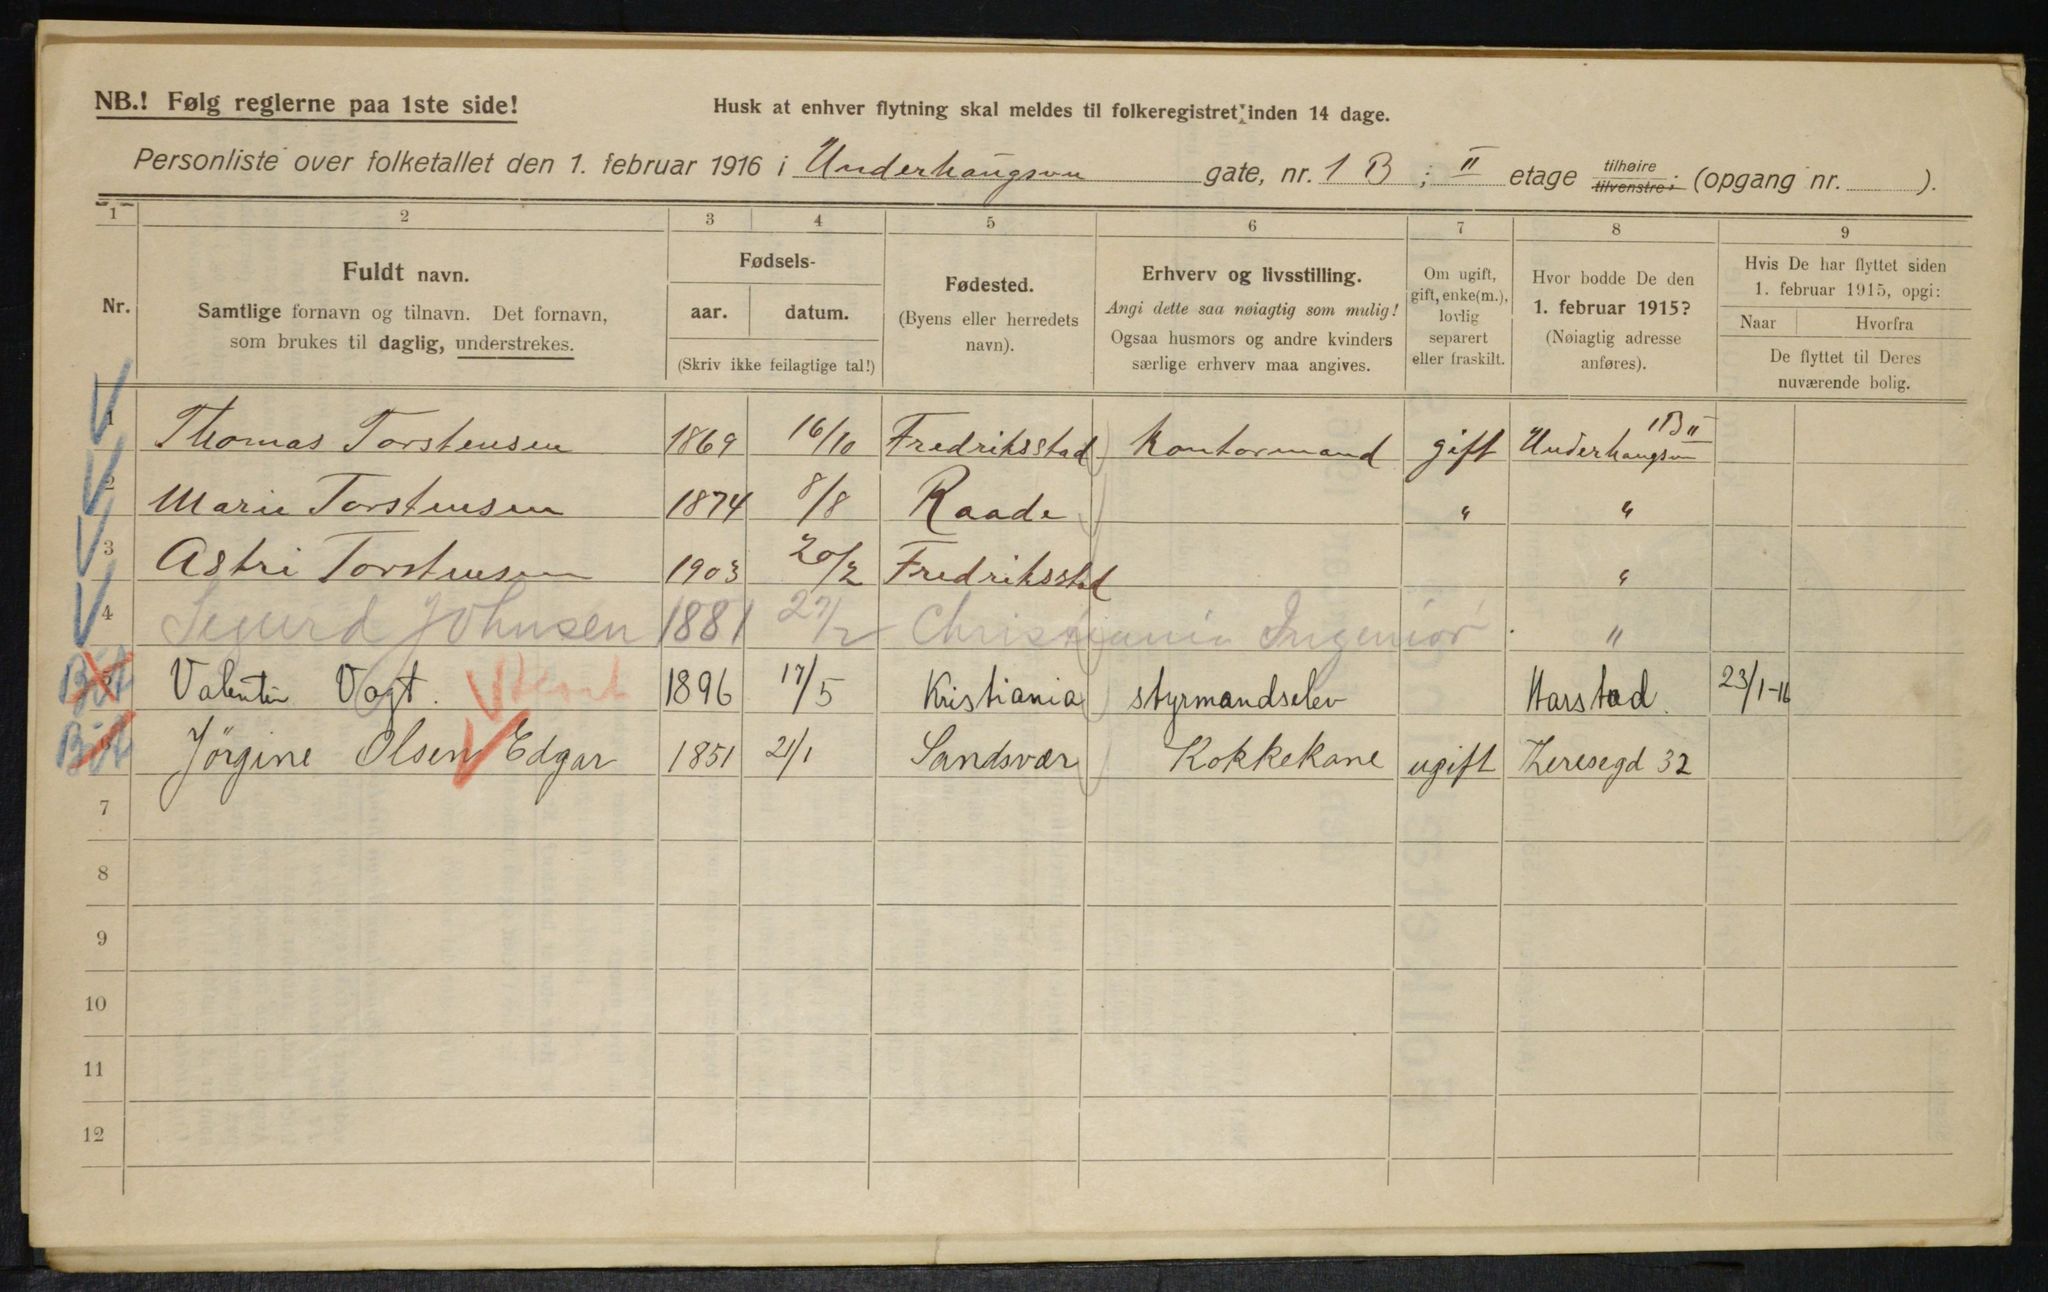 NB.! Følg reglerne paa 1ste side!
Husk at enhver flytning skal meldes til folkeregistret inden 14 dage.
Personliste over folketallet den 1. februar 1916 i Underhaugsvn gate, nr. 1 B ; II etage tilhøire tilvenstre; (opgang nr. ).
1 2 3 4 5 6 7 8 9
Nr.
Fuldt navn.
Samtlige fornavn og tilnavn. Det fornavn,
som brukes til daglig, understrekes.
Fødsels-
aar. datum.
(Skriv ikke feilagtige tal!)
Fødested.
(Byens eller herredets
navn).
Erhverv og livsstilling.
Angi dette saa nøiagtig som mulig!
Ogsaa husmors og andre kvinders
særlige erhverv maa angives.
Om ugift,
gift, enke(m.),
lovlig
separert
eller fraskilt.
Hvor bodde De den
1. februar 1915?
(Nøiagtig adresse
anføres).
Hvis De har flyttet siden
1. februar 1915, opgi:
Naar Hvorfra
De flyttet til Deres
nuværende bolig.
1 Thomas Torstensen 1869 16/10 Fredriksstad Kontormand gift Underhaugsvn 1B II
2 Marie Torstensen 1874 8/8 Raade " "
3 Astri Torstensen 1903 20/2 Fredriksstad "
4 Sigurd Johnsen 1881 27/2 Christiania Ingeniör "
5 Valentin Vogt. 1896 17/5 Kristiania styrmandselev Harstad. 23/1-16
6 Jörgine Olsen Edgar 1851 21/1 Sandsvær Kokkekone ugift Theresegd 32
7
8
9
10
11
12